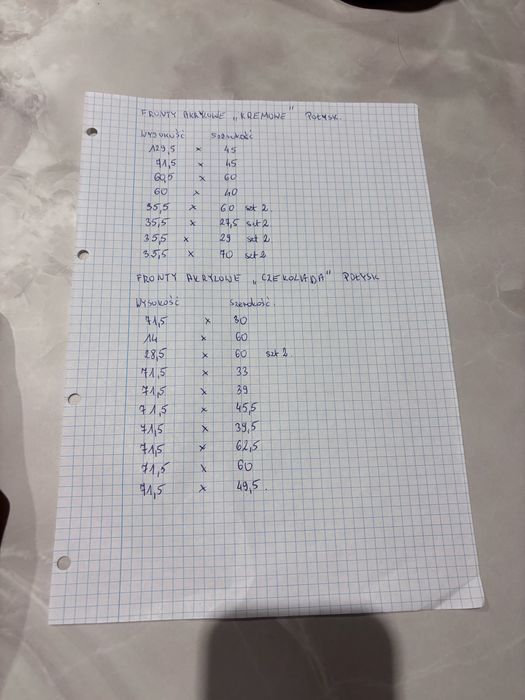 FRONTY AKRYLOWE „KREMOWE" POŁYSK.
WYSOKOŚĆ Szerokość
129,5 x 45
71,5 x 45
60,5 x 60
60 x 40
35,5 x 60 szt 2.
35,5 x 27,5 szt 2
35,5 x 29 szt 2
35,5 x 70 szt 2
FRONTY AKRYLOWE „CZEKOLADA" POŁYSK
WYSOKOŚĆ Szerokość.
71,5 x 30
14 x 60
28,5 x 60 szt 2.
71,5 x 33
71,5 x 39
71,5 x 45,5
71,5 x 39,5
71,5 x 62,5
71,5 x 60
71,5 x 49,5.